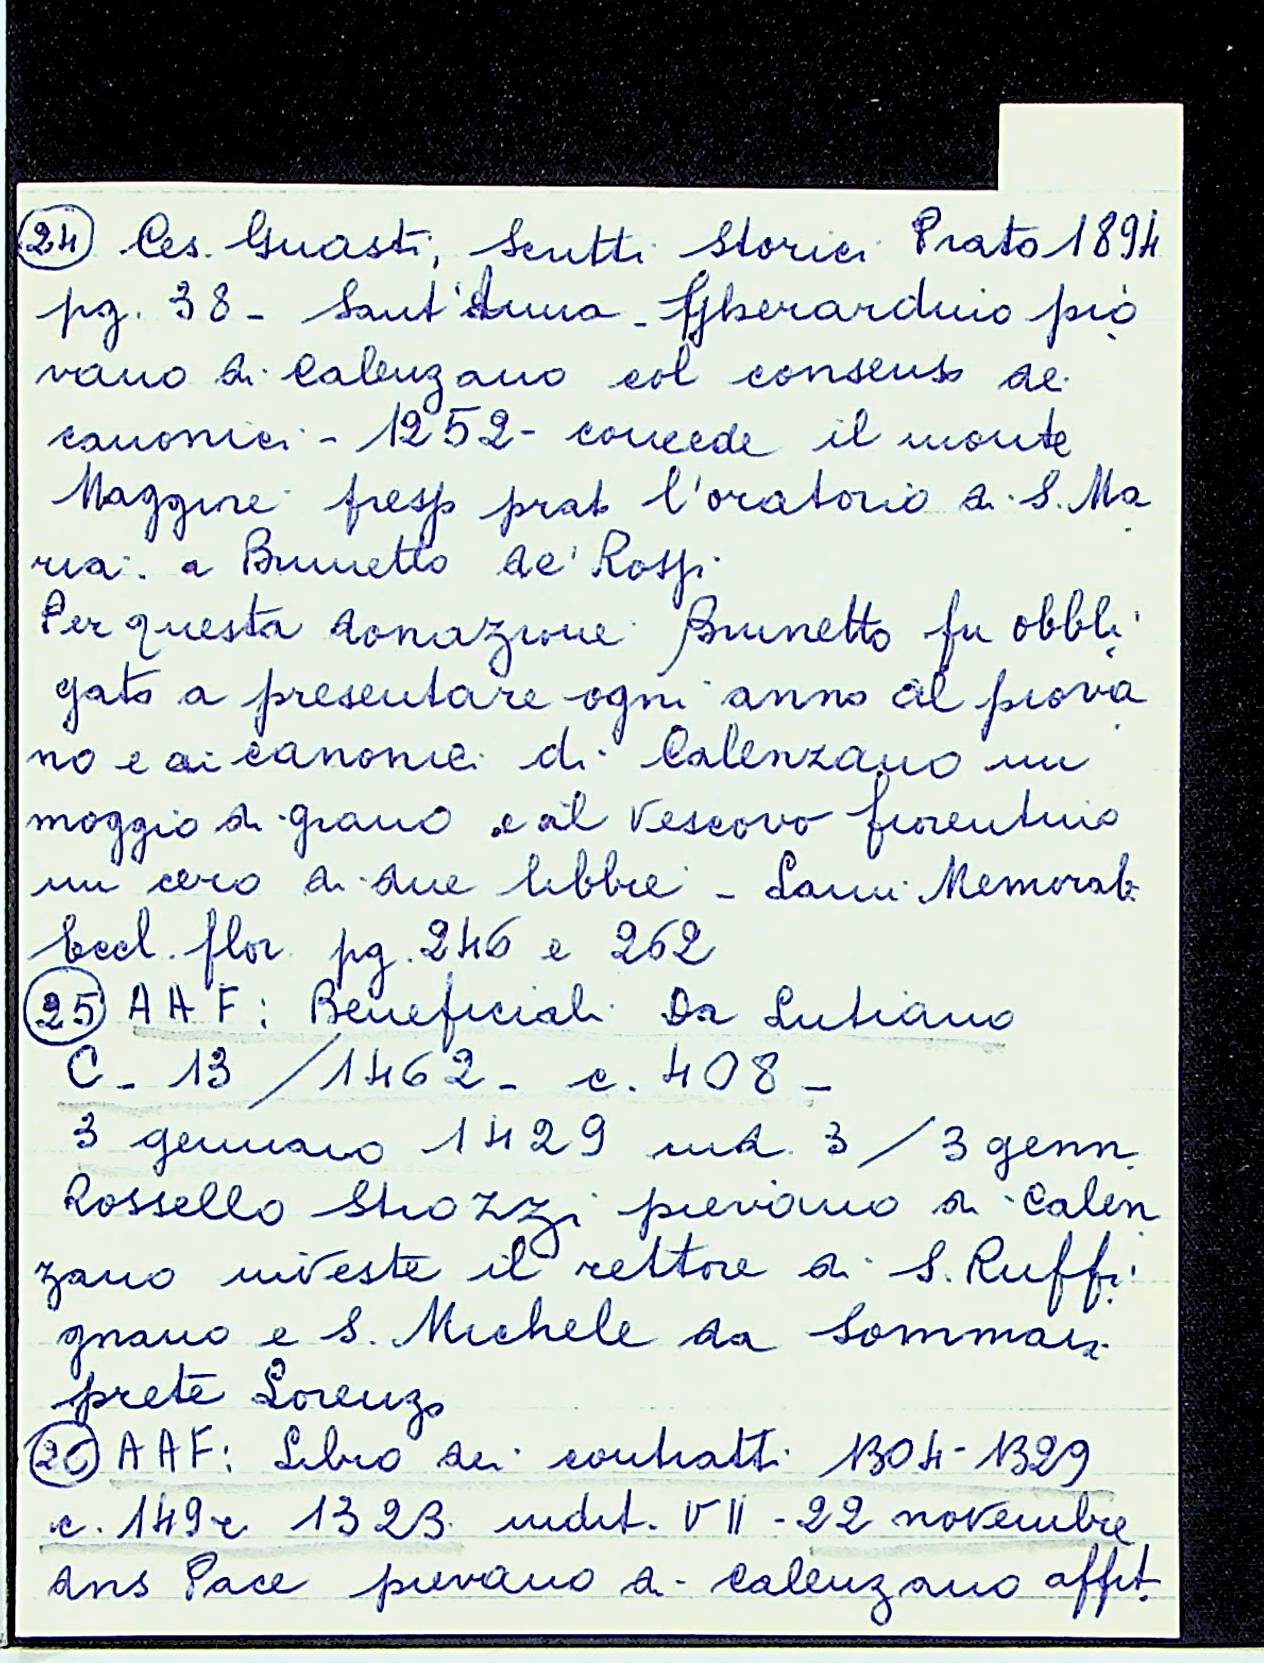 24 Ces. Guasti, Scritti Storici Prato 1894
pg. 38 - Sant'Anna - Gherarduio pio
vano di Calenzano col consenso dei
canonici - 1252 - concede il monte
Maggiore presso prato l'oratorio di S. Ma
ria. a Brunetto de' Rossi.
Per questa donazione Brunetto fu obbli
gato a presentare ogni anno al piova
no e ai canonici di Calenzano un
moggio di grano e al Vescovo fiorentino
un cero di due libbre - Lami Memorab
Eccl. flor. pg. 246 e 262
25 AAF: Beneficiali Da Lutiano
C - 13 / 1462 - c. 408 -
3 gennaio 1429 ind. 3 / 3 genn.
Rossello Strozzi pievano di Calen
zano investe il rettore di S. Ruffi
gnano e S. Michele da Sommaia
prete Lorenzo
26 AAF: Libro dei contratti 1304-1329
c. 149r 1323 indit. VII - 22 novembre
dns Pace pievano di Calenzano affit.